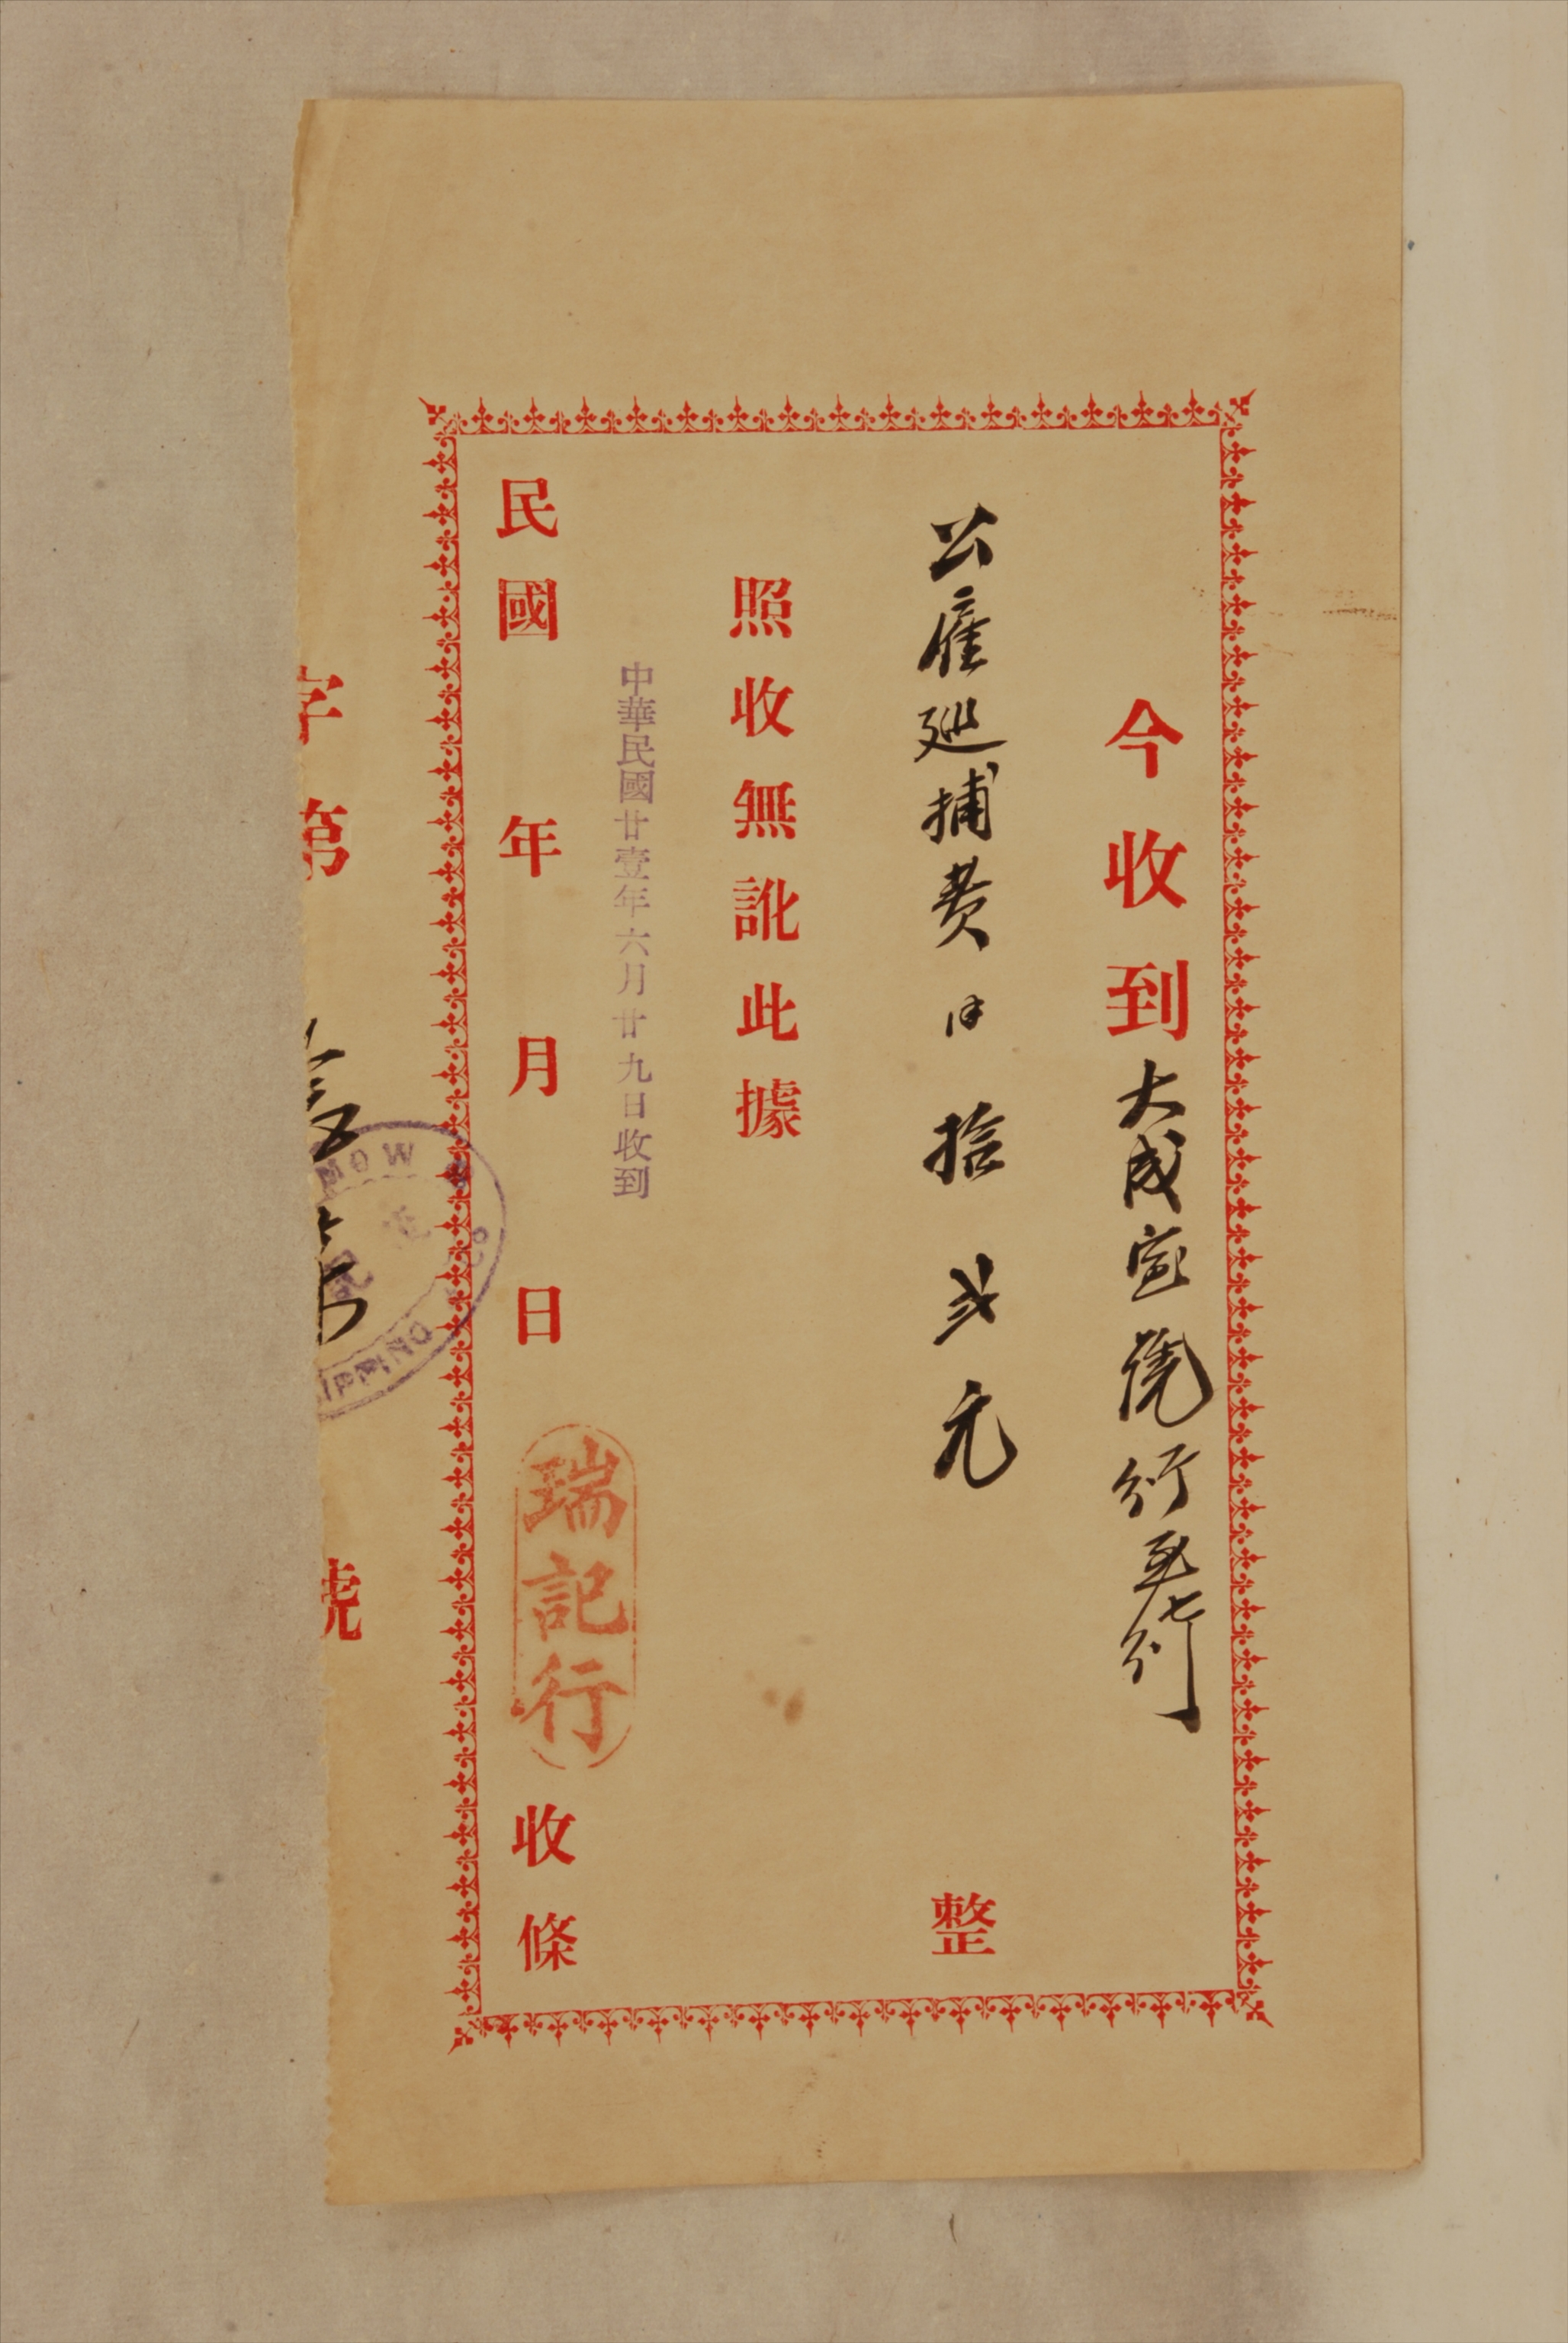 今收到大成壹號行
公雇巡捕費洋拾弍元整
照收無訛此據
中華民國廿壹年六月廿九日收到
民國年月日瑞記行收條
字第號
MOW
CO
IPPING